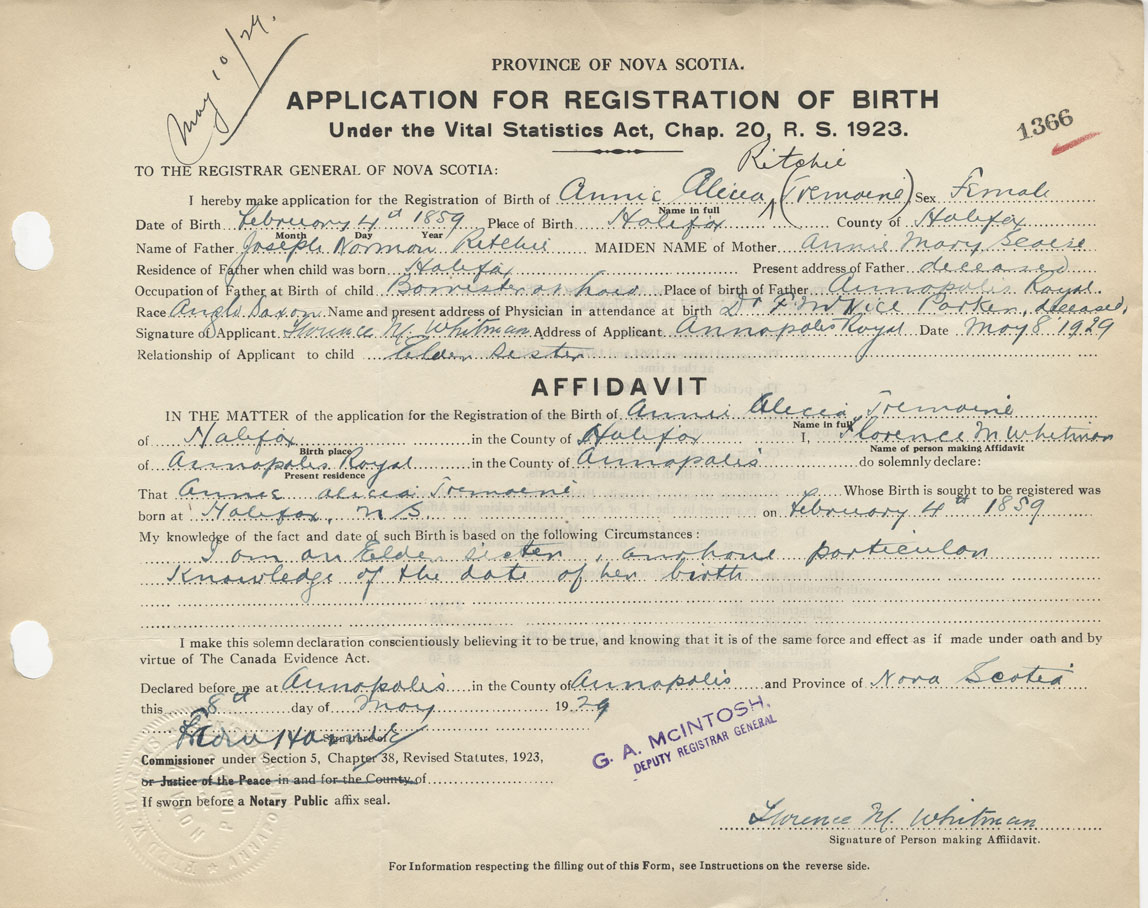 May 10/29.
PROVINCE OF NOVA SCOTIA.
APPLICATION FOR REGISTRATION OF BIRTH
Under the Vital Statistics Act, Chap. 20, R. S. 1923.
1366
TO THE REGISTRAR GENERAL OF NOVA SCOTIA:
Ritchie
I hereby make application for the Registration of Birth of Annie Alicia (Tremaine) Sex Female
Name in full
Date of Birth February 4th 1859 Place of Birth Halifax County of Halifax
Month Day Year
Name of Father Joseph Norman Ritchie MAIDEN NAME of Mother Annie Mary
Residence of Father when child was born Halifax Present address of Father deceased
Occupation of Father at Birth of child Barrister at Law Place of birth of Father Annapolis Royal
Race Anglo Saxon Name and present address of Physician in attendance at birth Dr Parker, deceased,
Signature of Applicant Florence M. Whitman Address of Applicant Annapolis Royal Date May 8 1929
Relationship of Applicant to child Elder Sister
AFFIDAVIT
IN THE MATTER of the application for the Registration of the Birth of Annie Alicia Tremaine
Name in full
of Halifax in the County of Halifax I, Florence M Whitman
Birth place Name of person making Affidavit
of Annapolis Royal in the County of Annapolis do solemnly declare:
Present residence
That Annie Alicia Tremaine Whose Birth is sought to be registered was
born at Halifax, N S. on February 4th 1859
My knowledge of the fact and date of such Birth is based on the following Circumstances:
I am an Elder sister, particular
Knowledge of the date of her birth
I make this solemn declaration conscientiously believing it to be true, and knowing that it is of the same force and effect as if made under oath and by
virtue of The Canada Evidence Act.
Declared before me at Annapolis in the County of Annapolis and Province of Nova Scotia
this 8th day of May 1929
G. A. MCINTOSH,
DEPUTY REGISTRAR GENERAL
Signature of
Commissioner under Section 5, Chapter 38, Revised Statutes, 1923,
or Justice of the Peace in and for the County of
If sworn before a Notary Public affix seal.
Florence M Whitman
Signature of Person making Affiidavit.
For Information respecting the filling out of this Form, see Instructions on the reverse side.